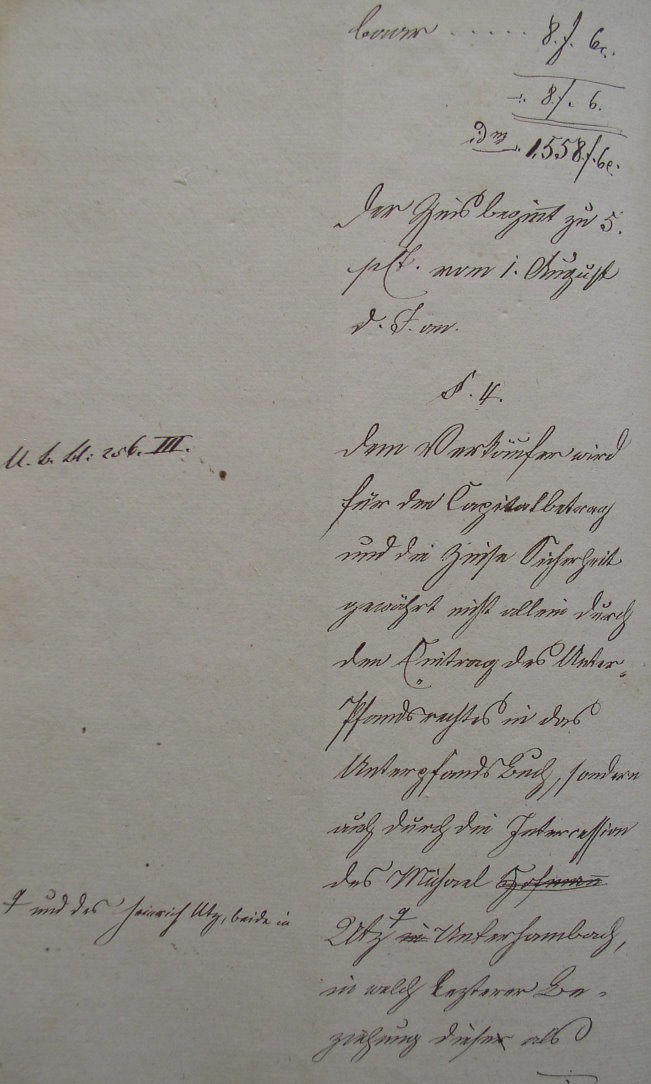 baar ..... 8.f. 6c.
8f. 6.
1,558f. 6c.
Der Zins beginnt zu 5.
pCt. vom 1. August
d. J. an.
§. 4.
U. b. bl: 256. III.
Dem Verkäufer wird
für den Capitalbetrag
und die Zinse Sicherheit
gewährt nicht allein durch
den Eintrag des Unter-
Pfandsrechtes in das
Unterpfands Buch, sondern
auch durch die Intercession
des Michael
und des Heinrich Utz, beide in
Utz in Unterhambach,
in welch lezterer Be-
ziehung dieser als